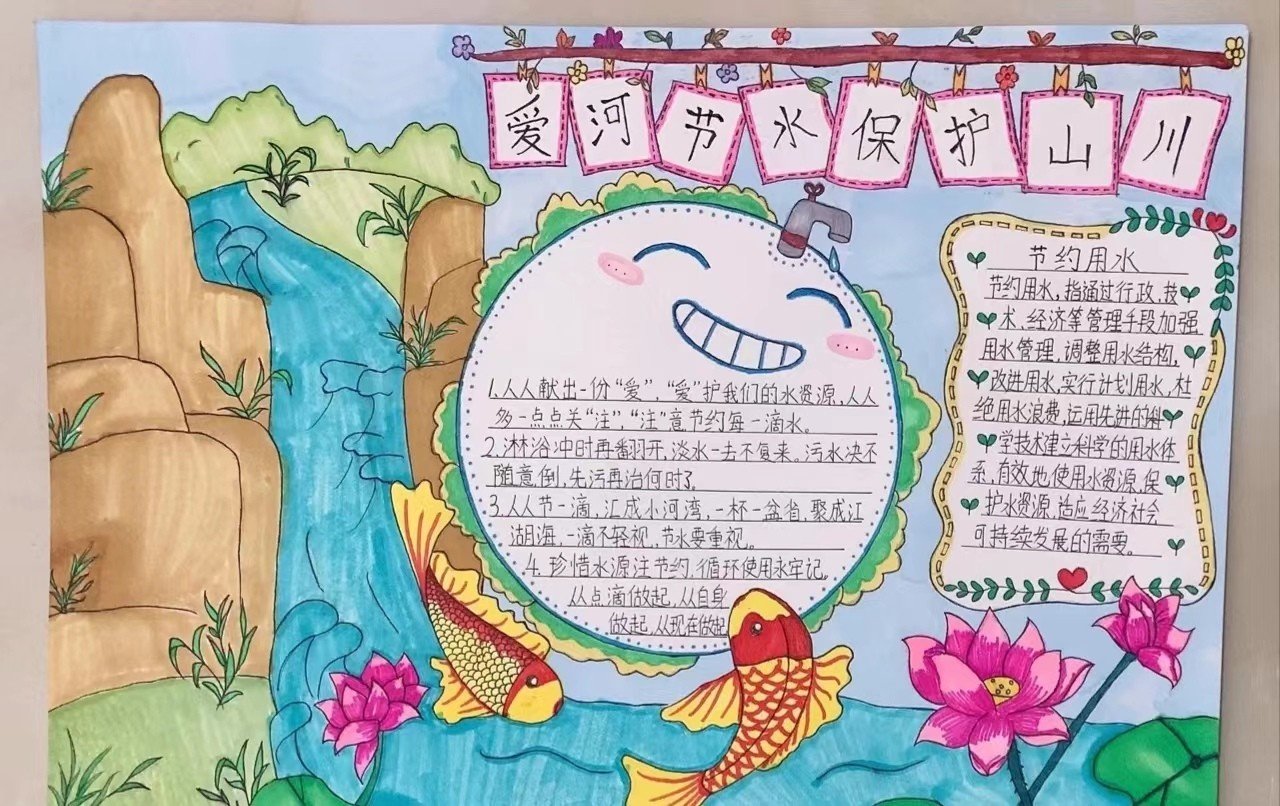 爱河节水保护山川
1.人人献出一份“爱”,“爱”护我们的水资源,人人
多一点点关“注”,“注”意节约每一滴水。
2.淋浴冲时再翻开,淡水一去不复来。污水决不
随意倒,先污再治何时了
3.人人节一滴,汇成小河湾,一杯一盆省,聚成江
湖海,一滴不轻视,节水要重视。
4.珍惜水源注节约,循环使用永牢记。
从点滴做起,从自身
做起,从现在做起
节约用水
节约用水,指通过行政、技
术、经济等管理手段加强
用水管理,调整用水结构,
改进用水,实行计划用水,杜
绝用水浪费,运用先进的科
学技术建立科学的用水体
系,有效地使用水资源,保
护水资源,适应经济社会
可持续发展的需要。